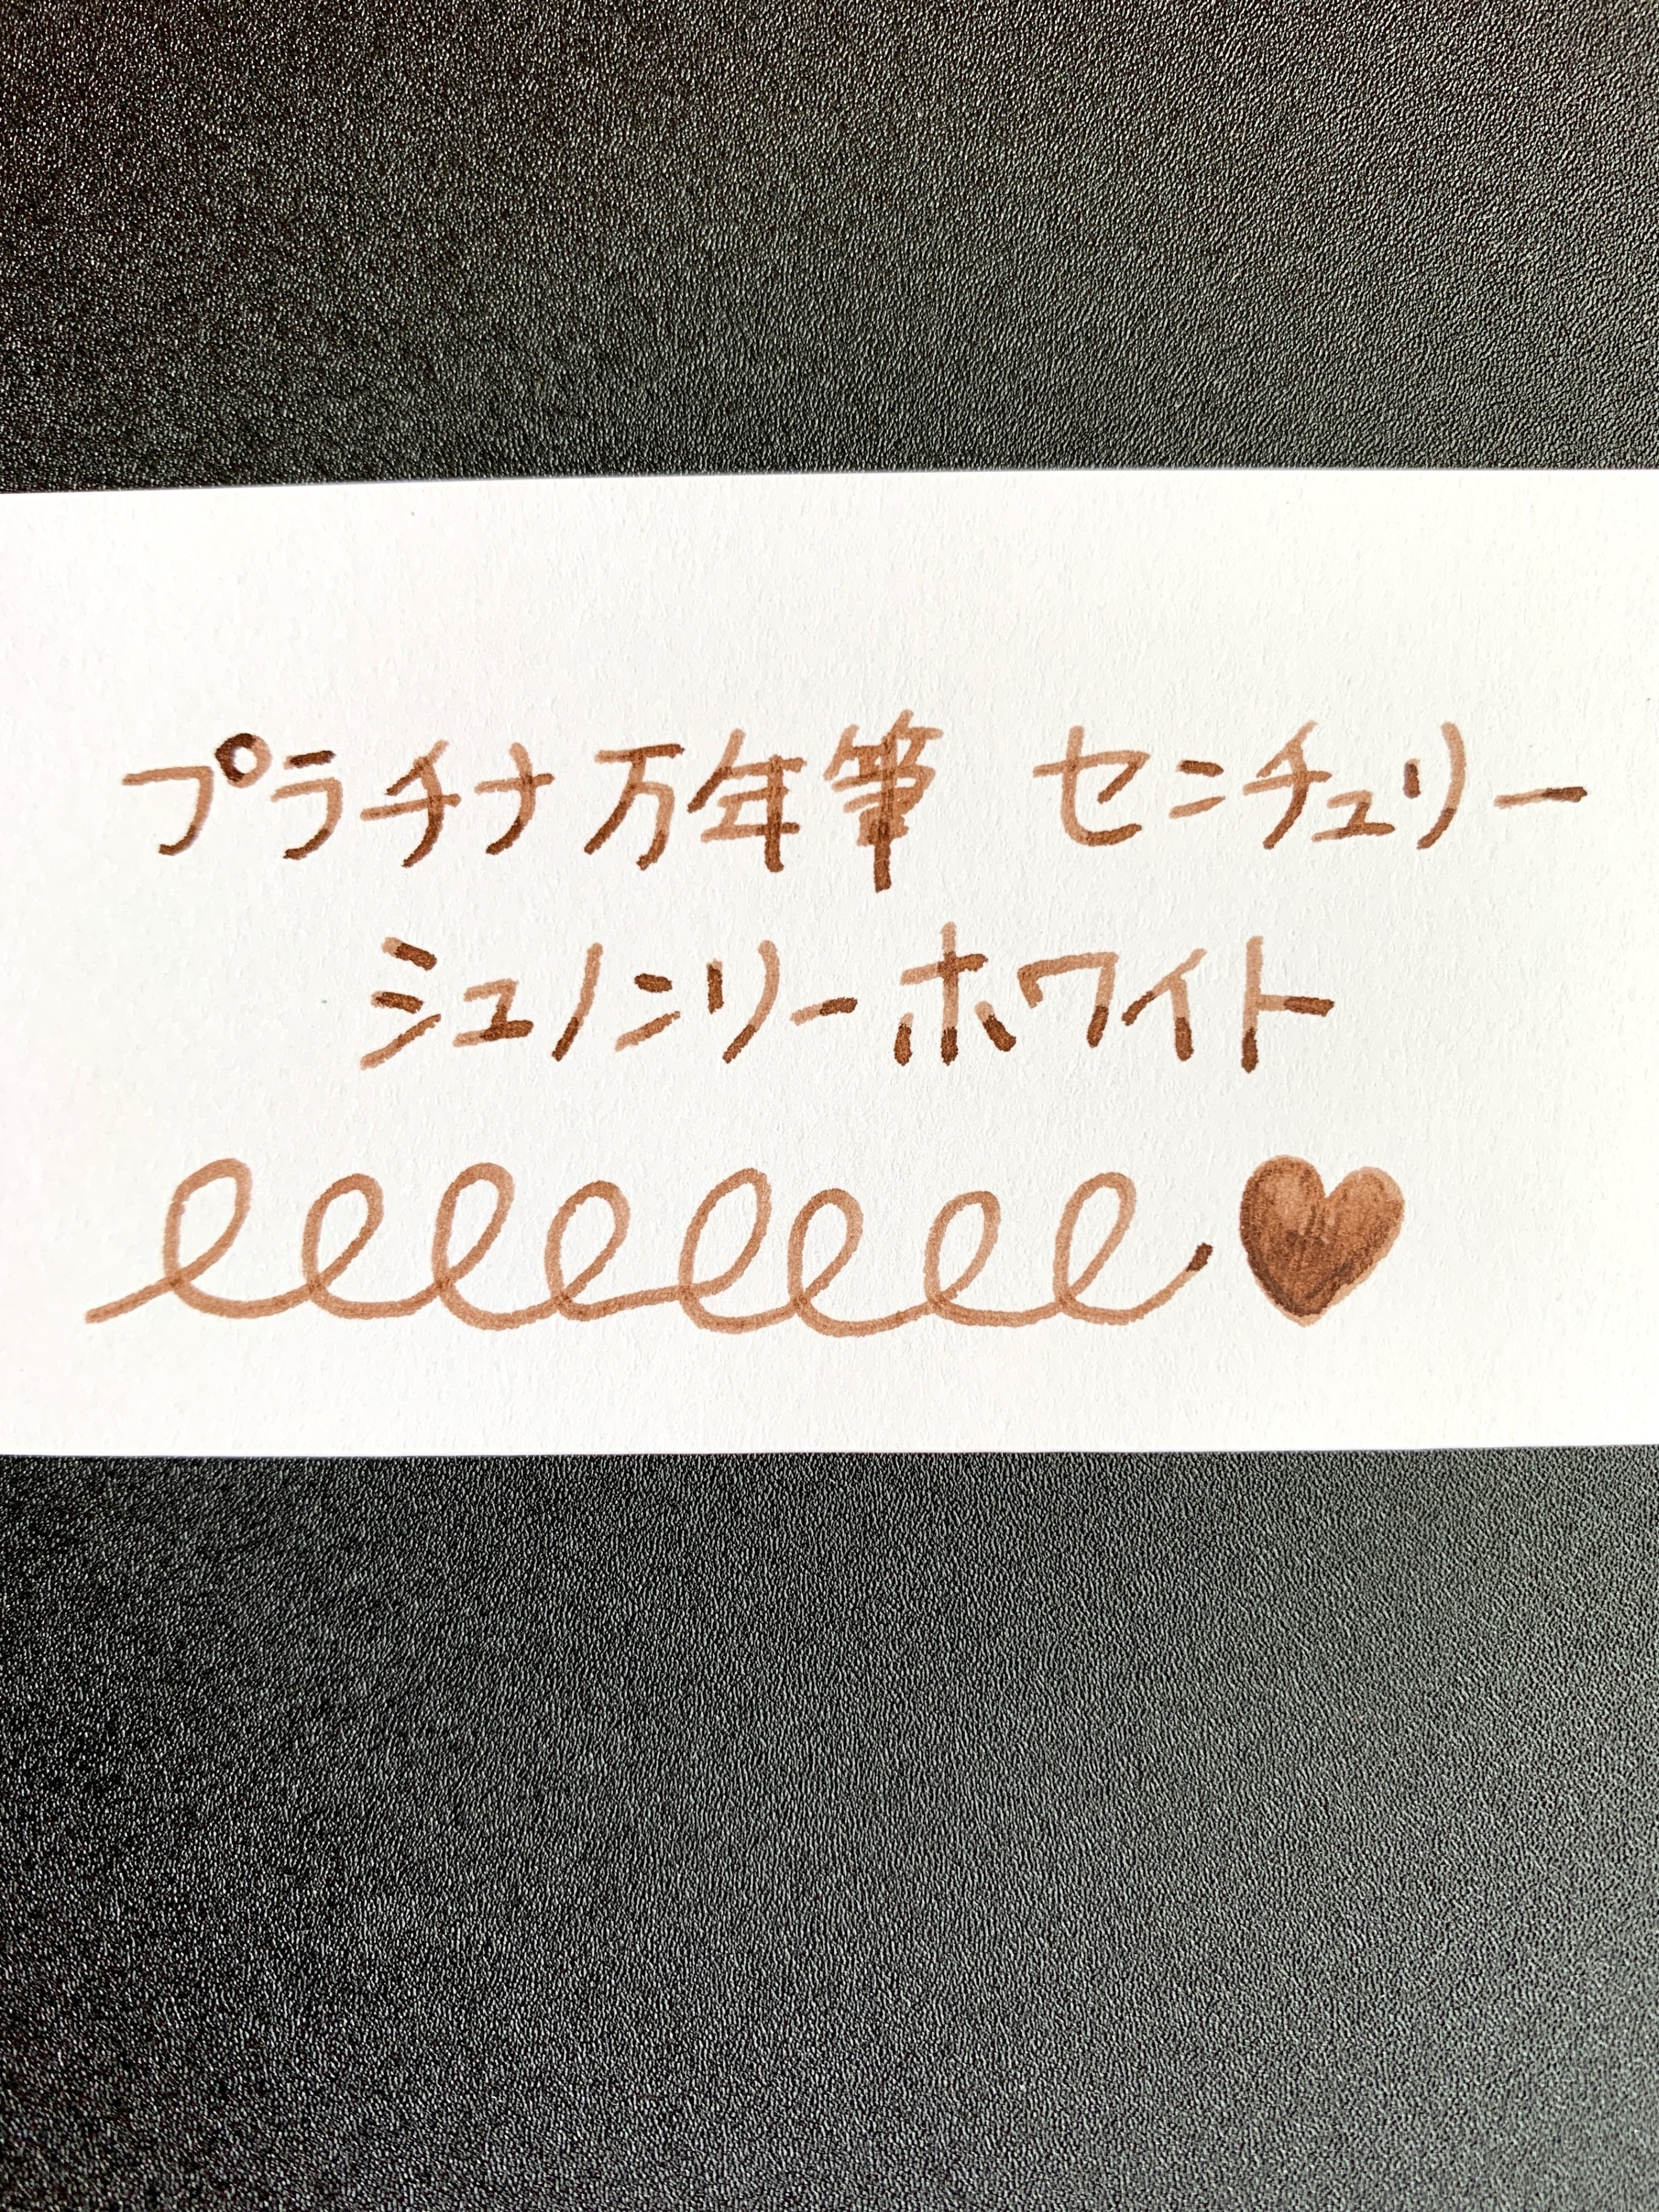 プラチナ万年筆 センチュリー
シュノンソーホワイト